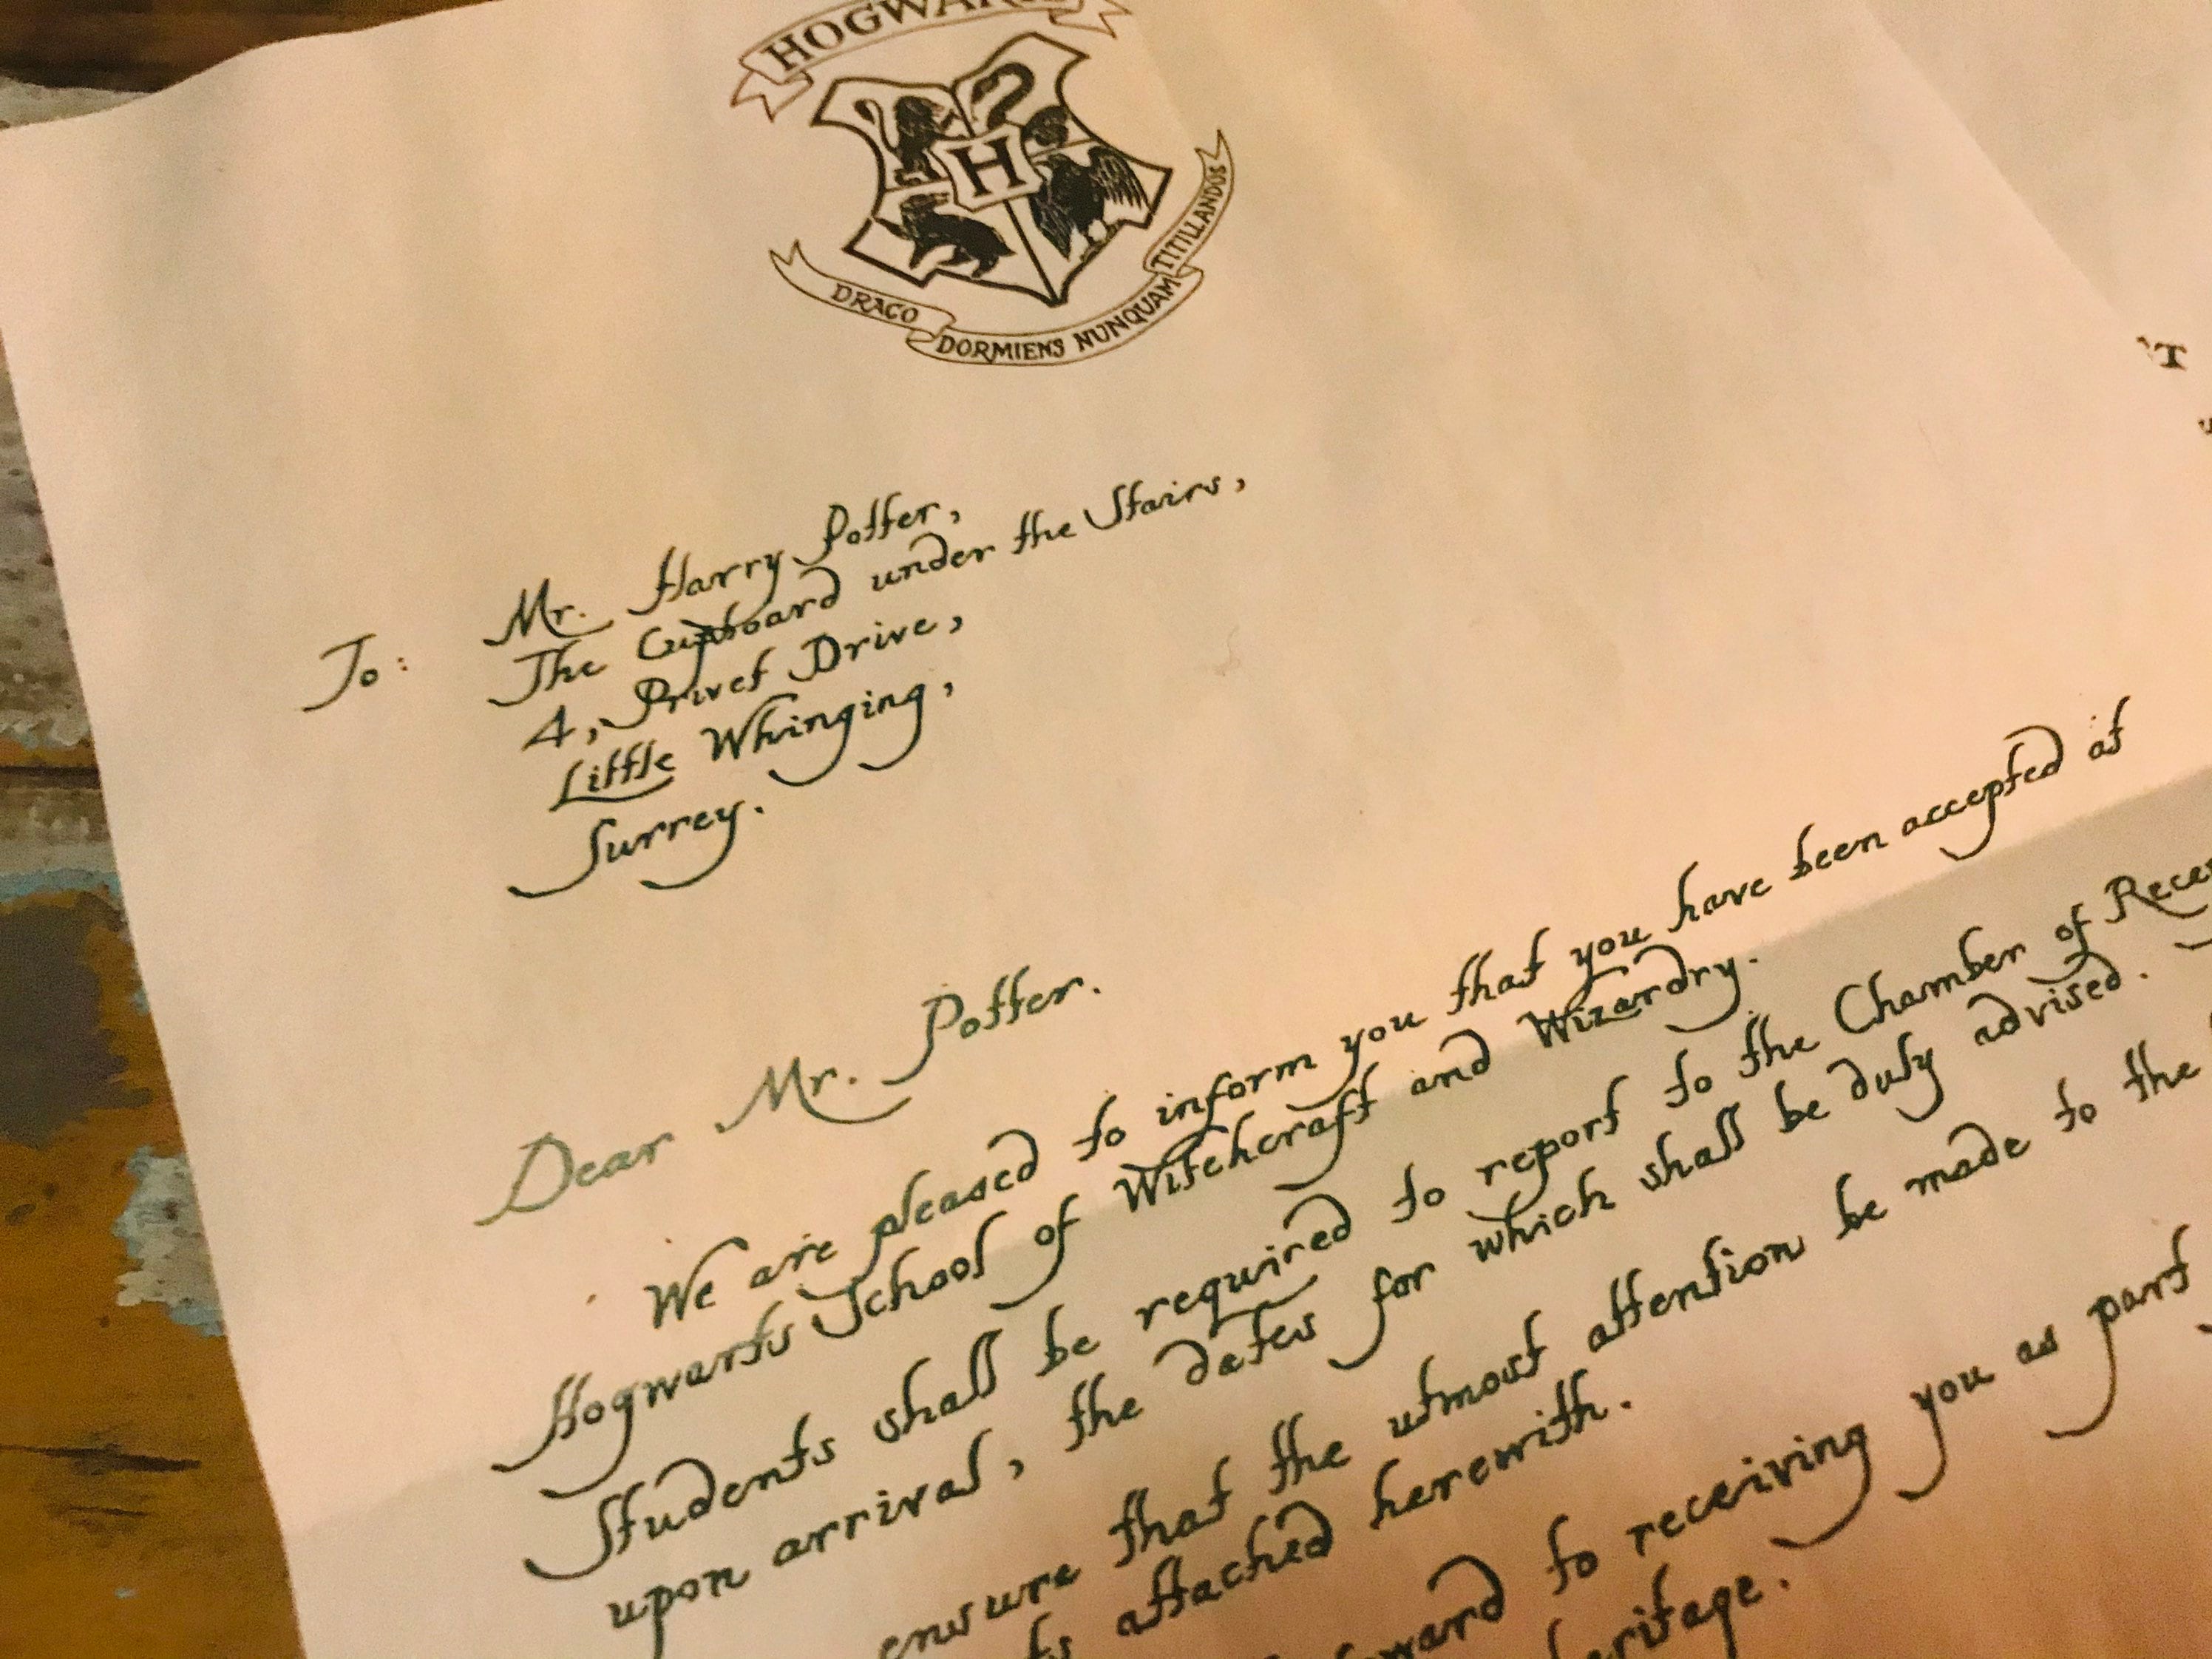 HOGWAR
H
DRACO DORMIENS NUNQUAM TITILLANDUS
To: Mr. Harry Potter,
The Cupboard under the Stairs,
4, Privet Drive,
Little Whinging,
Surrey.
Dear Mr. Potter.
We are pleased to inform you that you have been accepted at
Hogwarts School of Witchcraft and Wizardry.
Students shall be required to report to the Chamber of
upon arrival, the dates for which shall be duly advised.
ensure that the utmost attention be made to the
attached herewith.
to receiving you as part